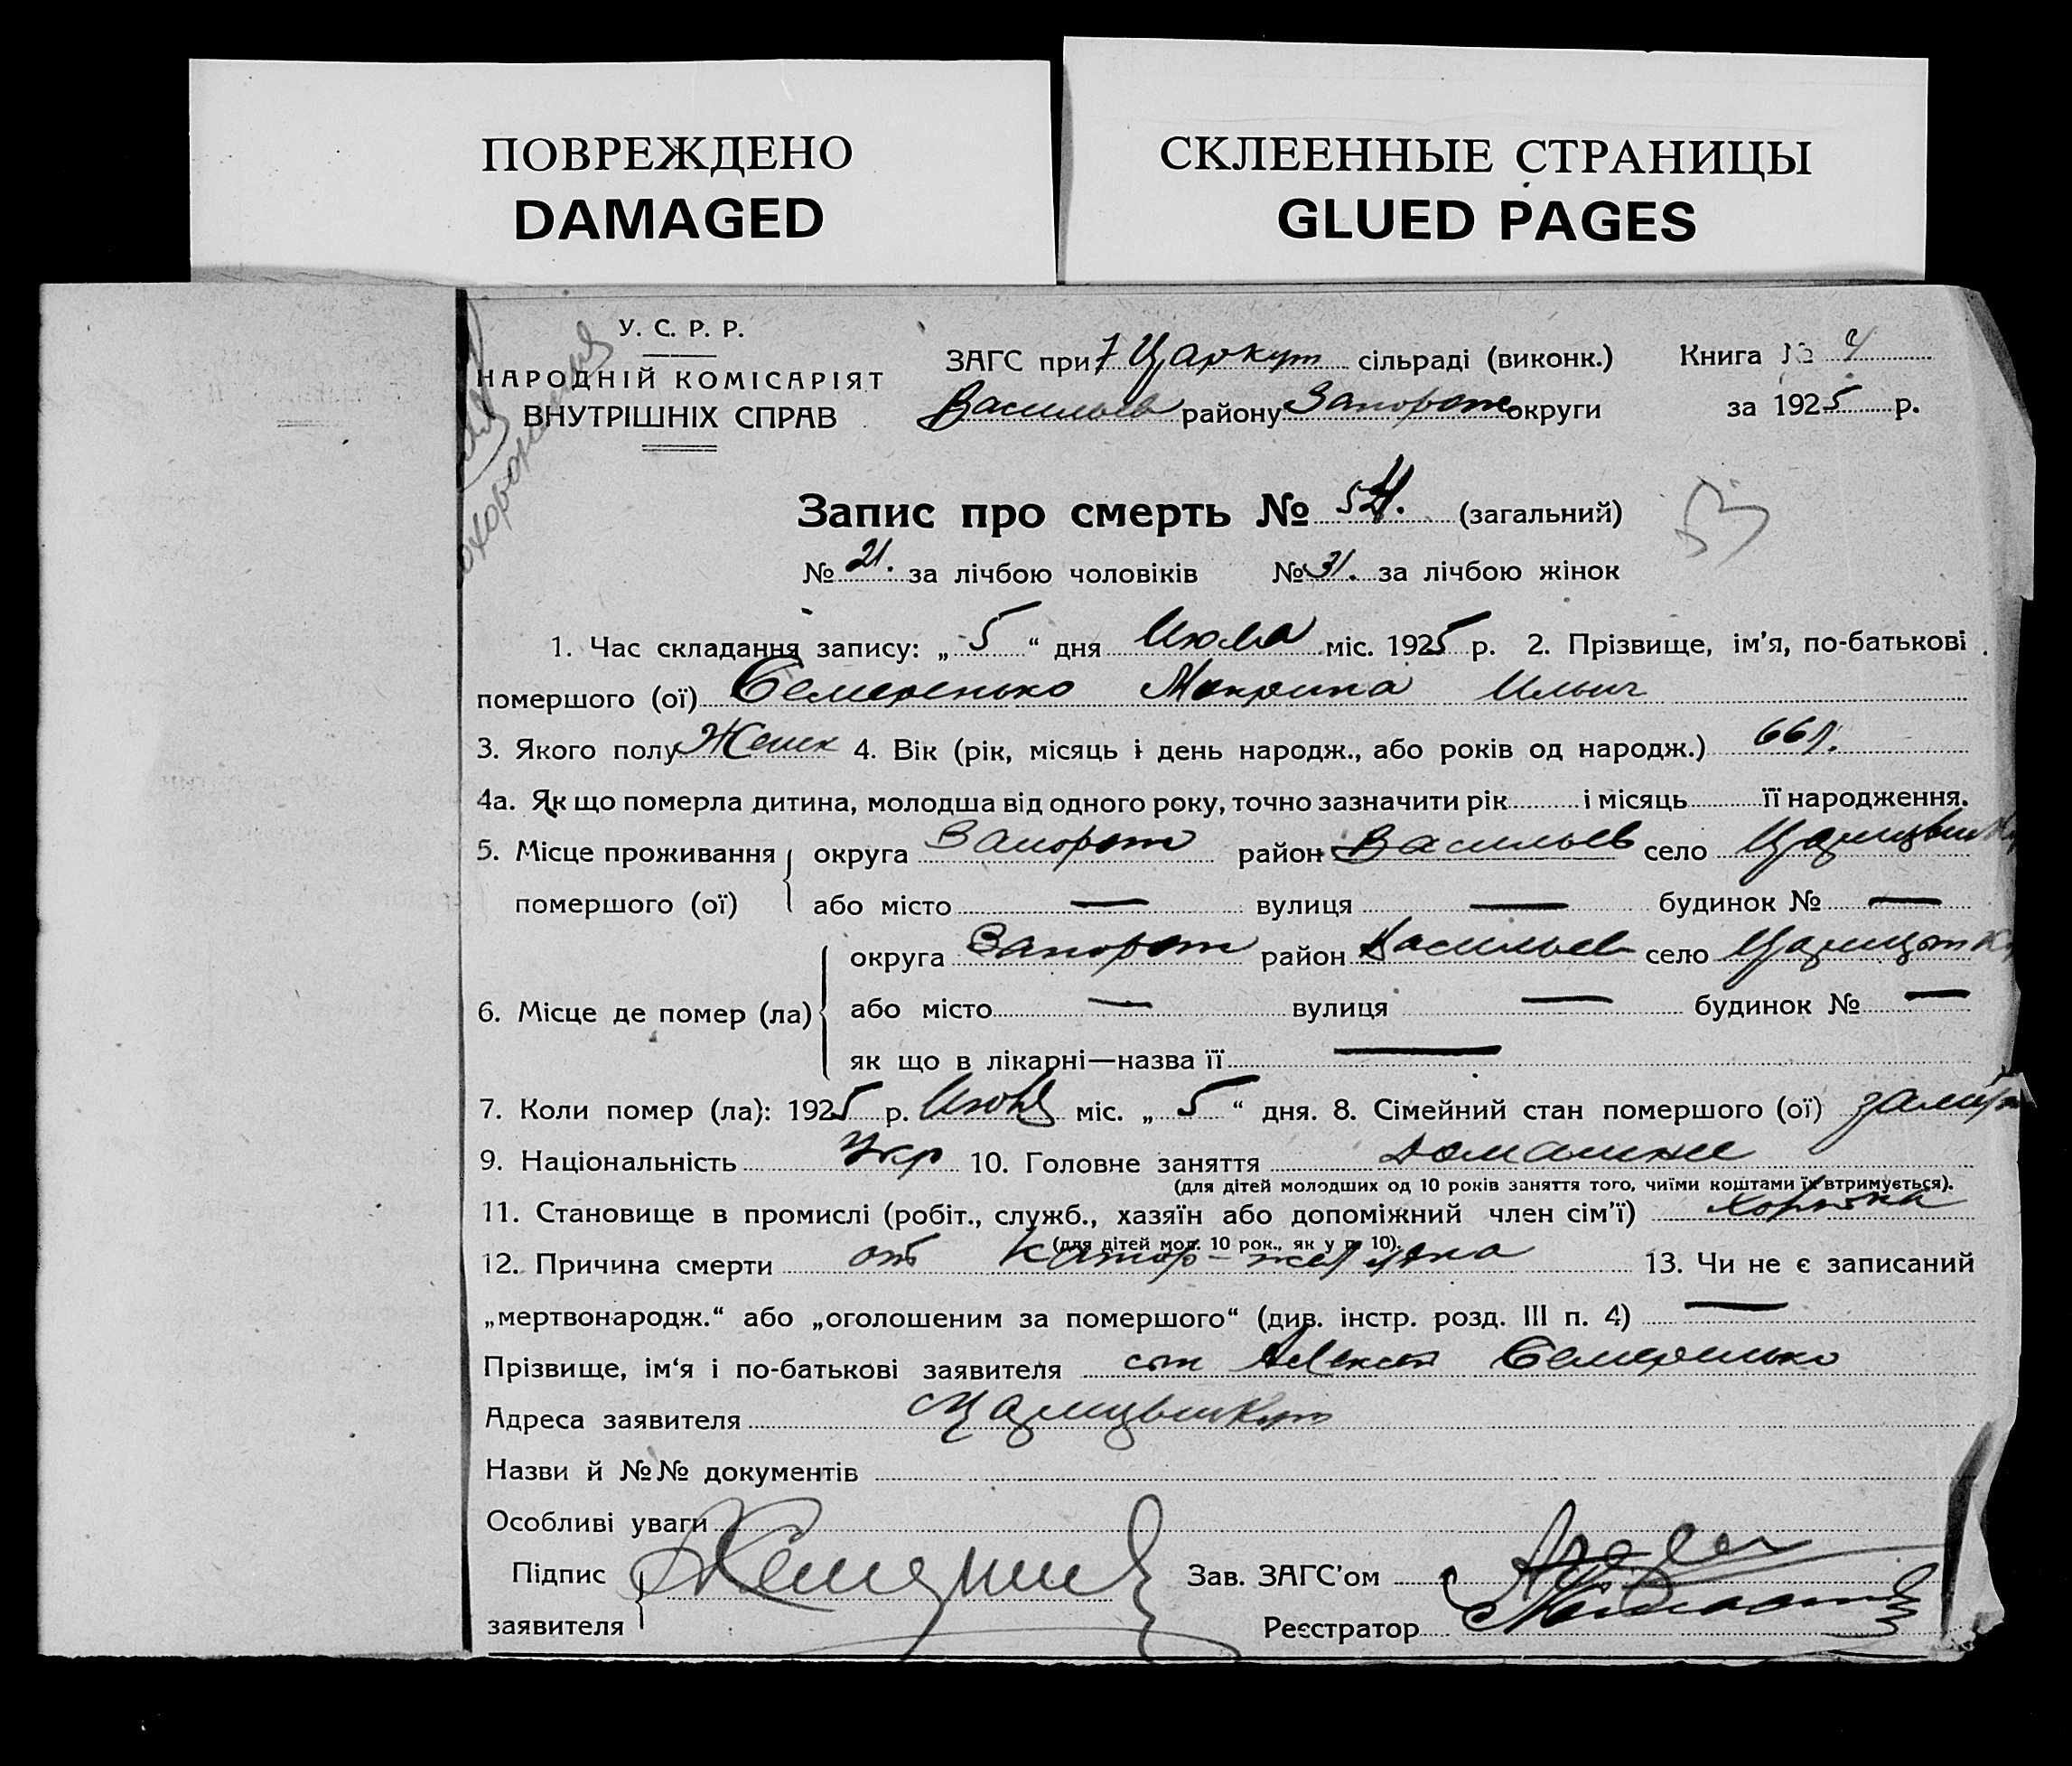 ПОВРЕЖДЕНО
DAMAGED
СКЛЕЕННЫЕ СТРАНИЦЫ
GLUED PAGES
У. С. Р. Р.
НАРОДНІЙ КОМІСАРІЯТ
ВНУТРІШНІХ СПРАВ
ЗАГС при Царкут сільраді (виконк.) Книга №
Васильев району Запорож округи за 1925 р.
Запис про смерть № (загальний)
53
№ 21. за лічбою чоловіків № 31. за лічбою жінок
1. Час складання запису: „ 5 “ дня Июля міс. 1925 р. 2. Прізвище, ім'я, по-батькові
помершого (ої) Семеренько Макрина Ильич
3. Якого полу Женск 4. Вік (рік, місяць і день народж., або років од народж.) 66 л.
4а. Як що померла дитина, молодша від одного року, точно зазначити рік і місяць її народження.
5. Місце проживання округа Запорож район Васильев село
помершого (ої) або місто — вулиця — будинок № —
округа Запорож район Васильев село
6. Місце де помер (ла) або місто — вулиця — будинок № —
як що в лікарні—назва її —
7. Коли помер (ла): 1925 р. міс. „ 5 “ дня. 8. Сімейний стан помершого (ої)
9. Національність Укр 10. Головне заняття домашнее
(для дітей молодших од 10 років заняття того, чиїми коштами їх втримується).
11. Становище в промислі (робіт., служб., хазяїн або допоміжний член сім'ї)
(для дітей мол. 10 рок., як у п. 10).
12. Причина смерти от Катор-желудка 13. Чи не є записаний
„мертвонародж.“ або „оголошеним за помершого“ (див. інстр. розд. III п. 4) —
Прізвище, ім'я і по-батькові заявителя Алексей Семеренько
Адреса заявителя Царицынкут
Назви й №№ документів
Особливі уваги
Підпис
заявителя
Зав. ЗАГС'ом
Реєстратор